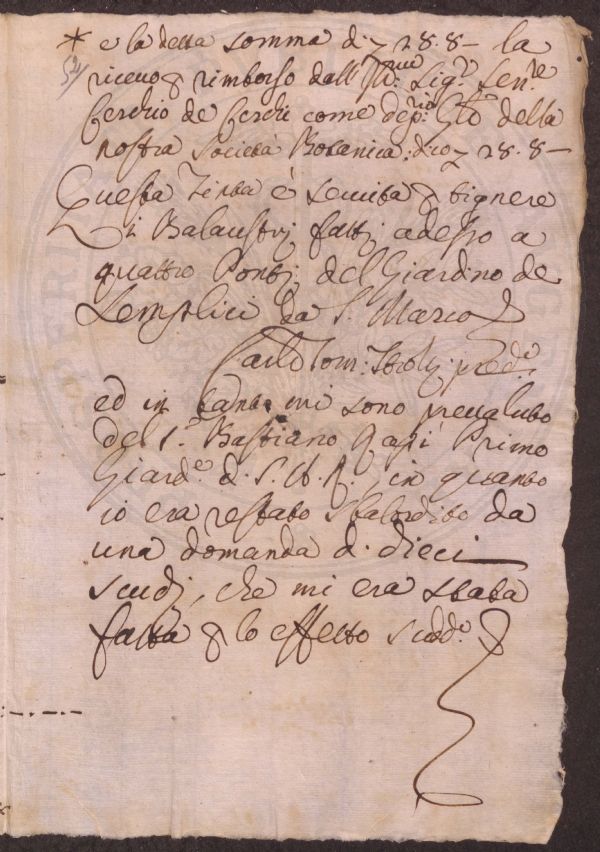 * e la detta somma di 7 28.8 – la
52
ricevo p rimborso dall' Ill:mo Sig.r Sen.re
Ferdio de Ferdi come dep:rio Gto della
nostra Società Botanica: dico 7 28.8 –
Questa Tinta è servita p tignere
i Balaustrj fattj adesso a
quattro Pontj del Giardino de
Semplici da S. Marco
Carlo Tom: pred.o
ed in tanto mi sono prevaluto
del S.r Bastiano Rapi Primo
Giard.e d. S. A. R., in quanto
io era restato sbalordito da
una domanda di dieci
scudj, che mi era stata
fatta p lo effetto sudd.o